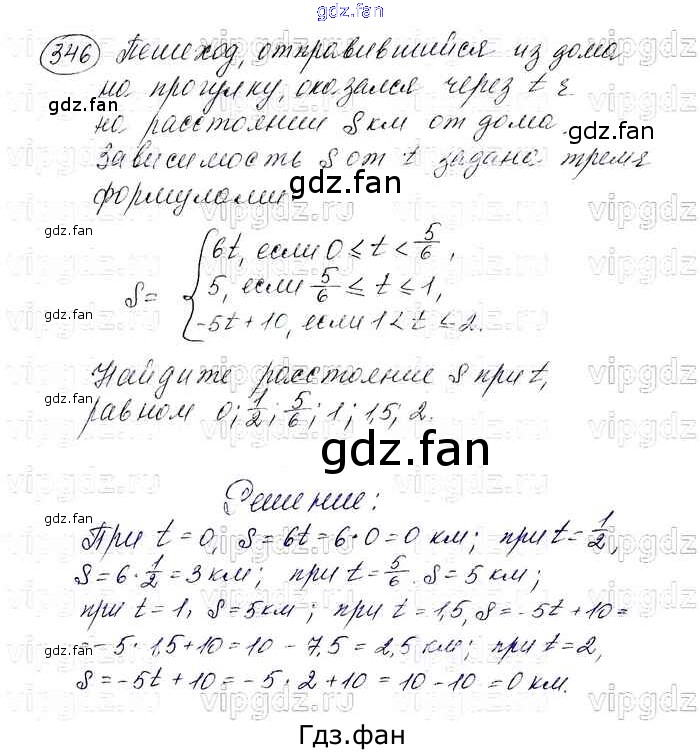 gdz.fan
346 Пешеход, отправившийся из дома
на прогулку, оказался через t ч
gdz.fan
на расстоянии S км от дома.
gdz.fan
Зависимость S от t задана тремя
gdz.fan
формулами:
gdz.fan
6t, если 0 ≤ t < 5/6,
S = { 5, если 5/6 ≤ t ≤ 1,
-5t + 10, если 1 < t ≤ 2.
gdz.fan
Найдите расстояние S при t,
gdz.fan
равном 0; 1/2; 5/6; 1; 1,5; 2.
gdz.fan
gdz.fan
Решение:
gdz.fan
При t = 0, S = 6t = 6·0 = 0 км; при t = 1/2,
S = 6·1/2 = 3 км; при t = 5/6 S = 5 км;
при t = 1, S = 5км; при t = 1,5, S = -5t + 10 =
= -5·1,5+10 = 10 - 7,5 = 2,5 км; при t = 2,
S = -5t + 10 = -5·2 + 10 = 10 - 10 = 0 км.
Гдз.фан